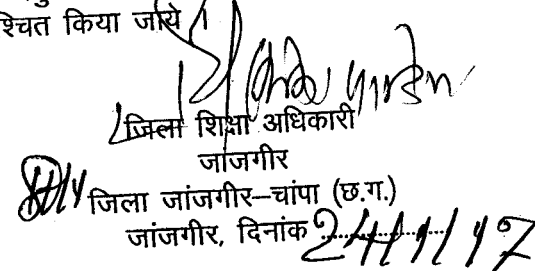 श्चित किया जाये।
जिला शिक्षा अधिकारी
जांजगीर
जिला जांजगीर–चांपा (छ.ग.)
जांजगीर, दिनांक 24/1/17